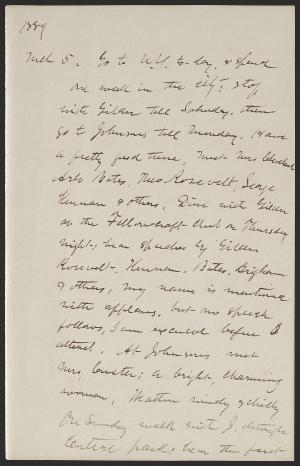 1889
Mch 5. Go to N.Y. to-day, & spend
one week in the city. Stop
with Gilder till Saturday, then
go to Johnsons till Monday. Have
a pretty good time, meet Mrs Cleveland
Arlo Bates, Theo Rosevelt, George
Kennan & others, Dine with Gilder
at the Fellowcraft Club on Thursday
night; hear speeches by Gilder
Rosevelt, Kennan, Bates, Brigham
& others, my name is mentioned
with applause, but no speech
follows, I am excused before I
attend. At Johnsons met
Mrs, Custer; a bright, charming
woman, Weather windy & chilly
On Sunday walk with J. through
Central park; hear the first